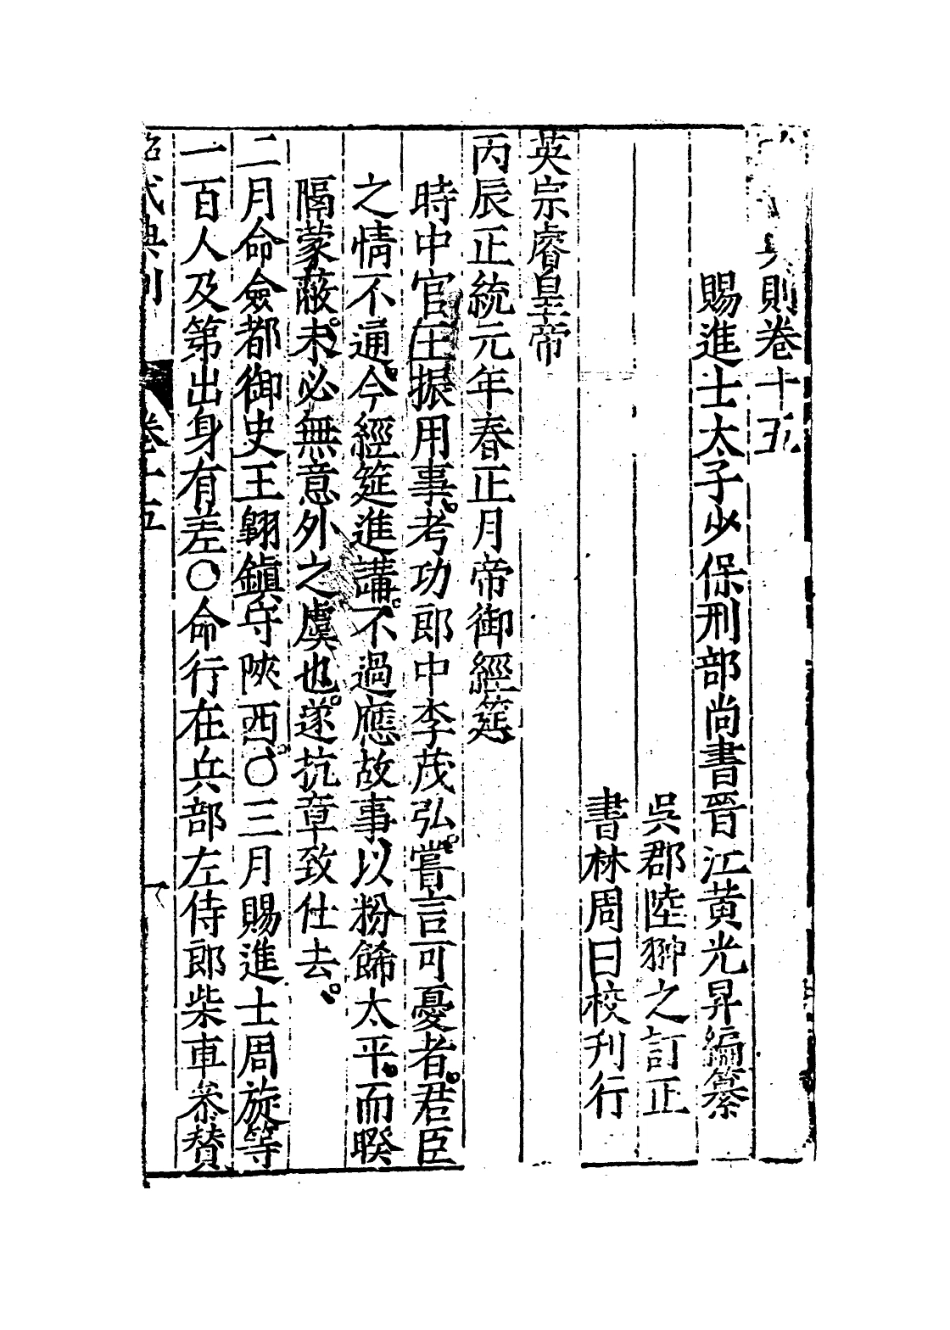 典則卷十五
賜進士太子少保刑部尚書晉江黃光昇編纂
吳郡陸翀之訂正
書林周曰校刊行
英宗睿皇帝
丙辰正統元年春正月帝御經筵
時中官王振用事。考功郎中李茂弘。嘗言可憂者。君臣
之情不通。今經筵進講。不過應故事以粉餙太平。而暌
隔蒙蔽。未必無意外之虞也。遂抗章致仕去。
二月命僉都御史王翱鎮守陝西。○三月賜進士周旋等
一百人及第出身有差○命行在兵部左侍郎柴車叅贊
昭代典則 卷十五 一